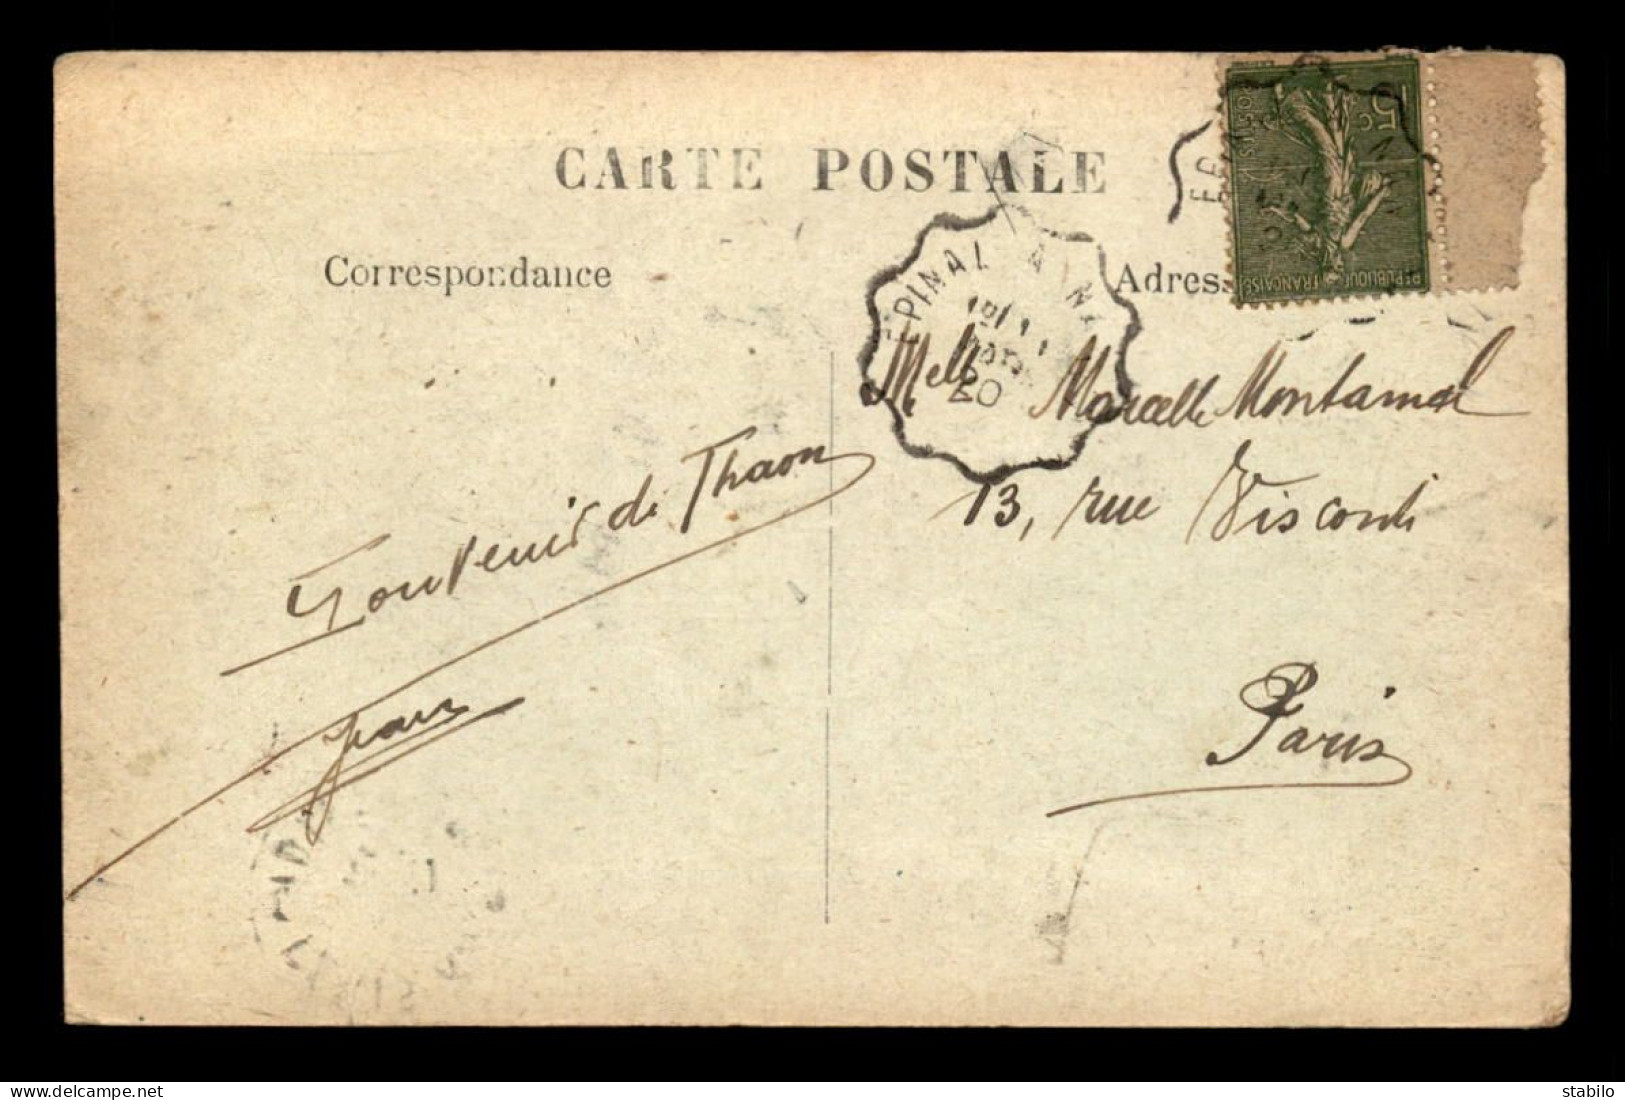 CARTE POSTALE
Correspondance
Adress
15c
POSTES
REPUBLIQUE FRANÇAISE
EPINAL A N
20
EPI
Souvenir de Thaon
Jean
Melle Marcelle Montamel
13, rue Visconti
Paris
https://www.delcampe.net
stabilo